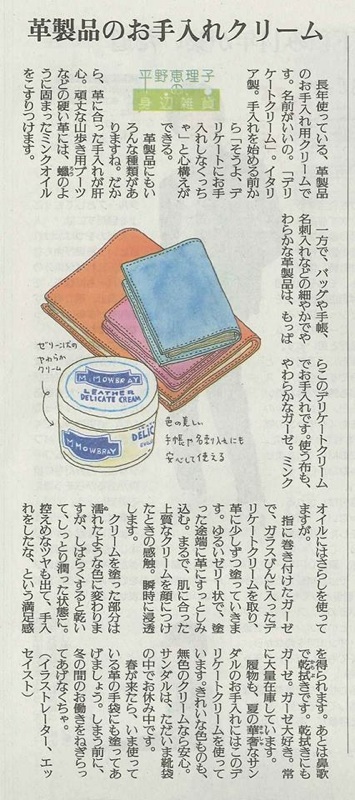 革製品のお手入れクリーム
平野恵理子の
身辺雑貨
　長年使っている、革製品
のお手入れ用クリームで
す。名前がいいの。「デリ
ケートクリーム」。イタリ
ア製。手入れを始める前か
ら「そうよ、デ
リケートにお手
入れしなくっち
ゃ」と心構えが
できる。
　革製品にもい
ろんな種類があ
りますね。だか
ら、革に合った手入れが肝
心。頑丈な山歩き用ブーツ
などの硬い革には、蠟のよ
うに固まったミンクオイル
をこすりつけます。
　一方で、バッグや手帳、
名刺入れなどの細やかでや
わらかな革製品は、もっぱ
らこのデリケートクリーム
でお手入れです。使う布も、
やわらかなガーゼ。ミンク
ゼリー状の
やわらか
クリーム
M.MOWBRAY
LEATHER
DELICATE CREAM
M.MOWBRAY
DELIC
色の美しい
手帳や名刺入れにも
安心して使える
オイルにはさらしを使って
ますが。
　指に巻き付けたガーゼ
で、ガラスびんに入ったデ
リケートクリームを取り、
革に少しずつ塗っていきま
す。ゆるいゼリー状で、塗
った途端に革にすっとしみ
込む。まるで、肌に合った
上質なクリームを顔につけ
たときの感触。瞬時に浸透
します。
　クリームを塗った部分は
濡れたような色に変わりま
すが、しばらくすると乾い
て、しっとり潤った状態に。
控えめなツヤも出て、手入
れをしたな、という満足感
を得られます。あとは鼻歌
で乾拭きです。乾拭きにも
ガーゼ。ガーゼ大好き。常
に大量在庫しています。
　履物も、夏の華奢なサン
ダルのお手入れにはこのデ
リケートクリームを使って
います。きれいな色ものも、
無色のクリームなら安心。
サンダルは、ただいま靴袋
の中でお休み中です。
　春が来たら、いま使って
いる革の手袋にも塗ってあ
げましょう。しまう前に、
冬の間のお働きをねぎらっ
てあげなくちゃ。
（イラストレーター、エッ
セイスト）